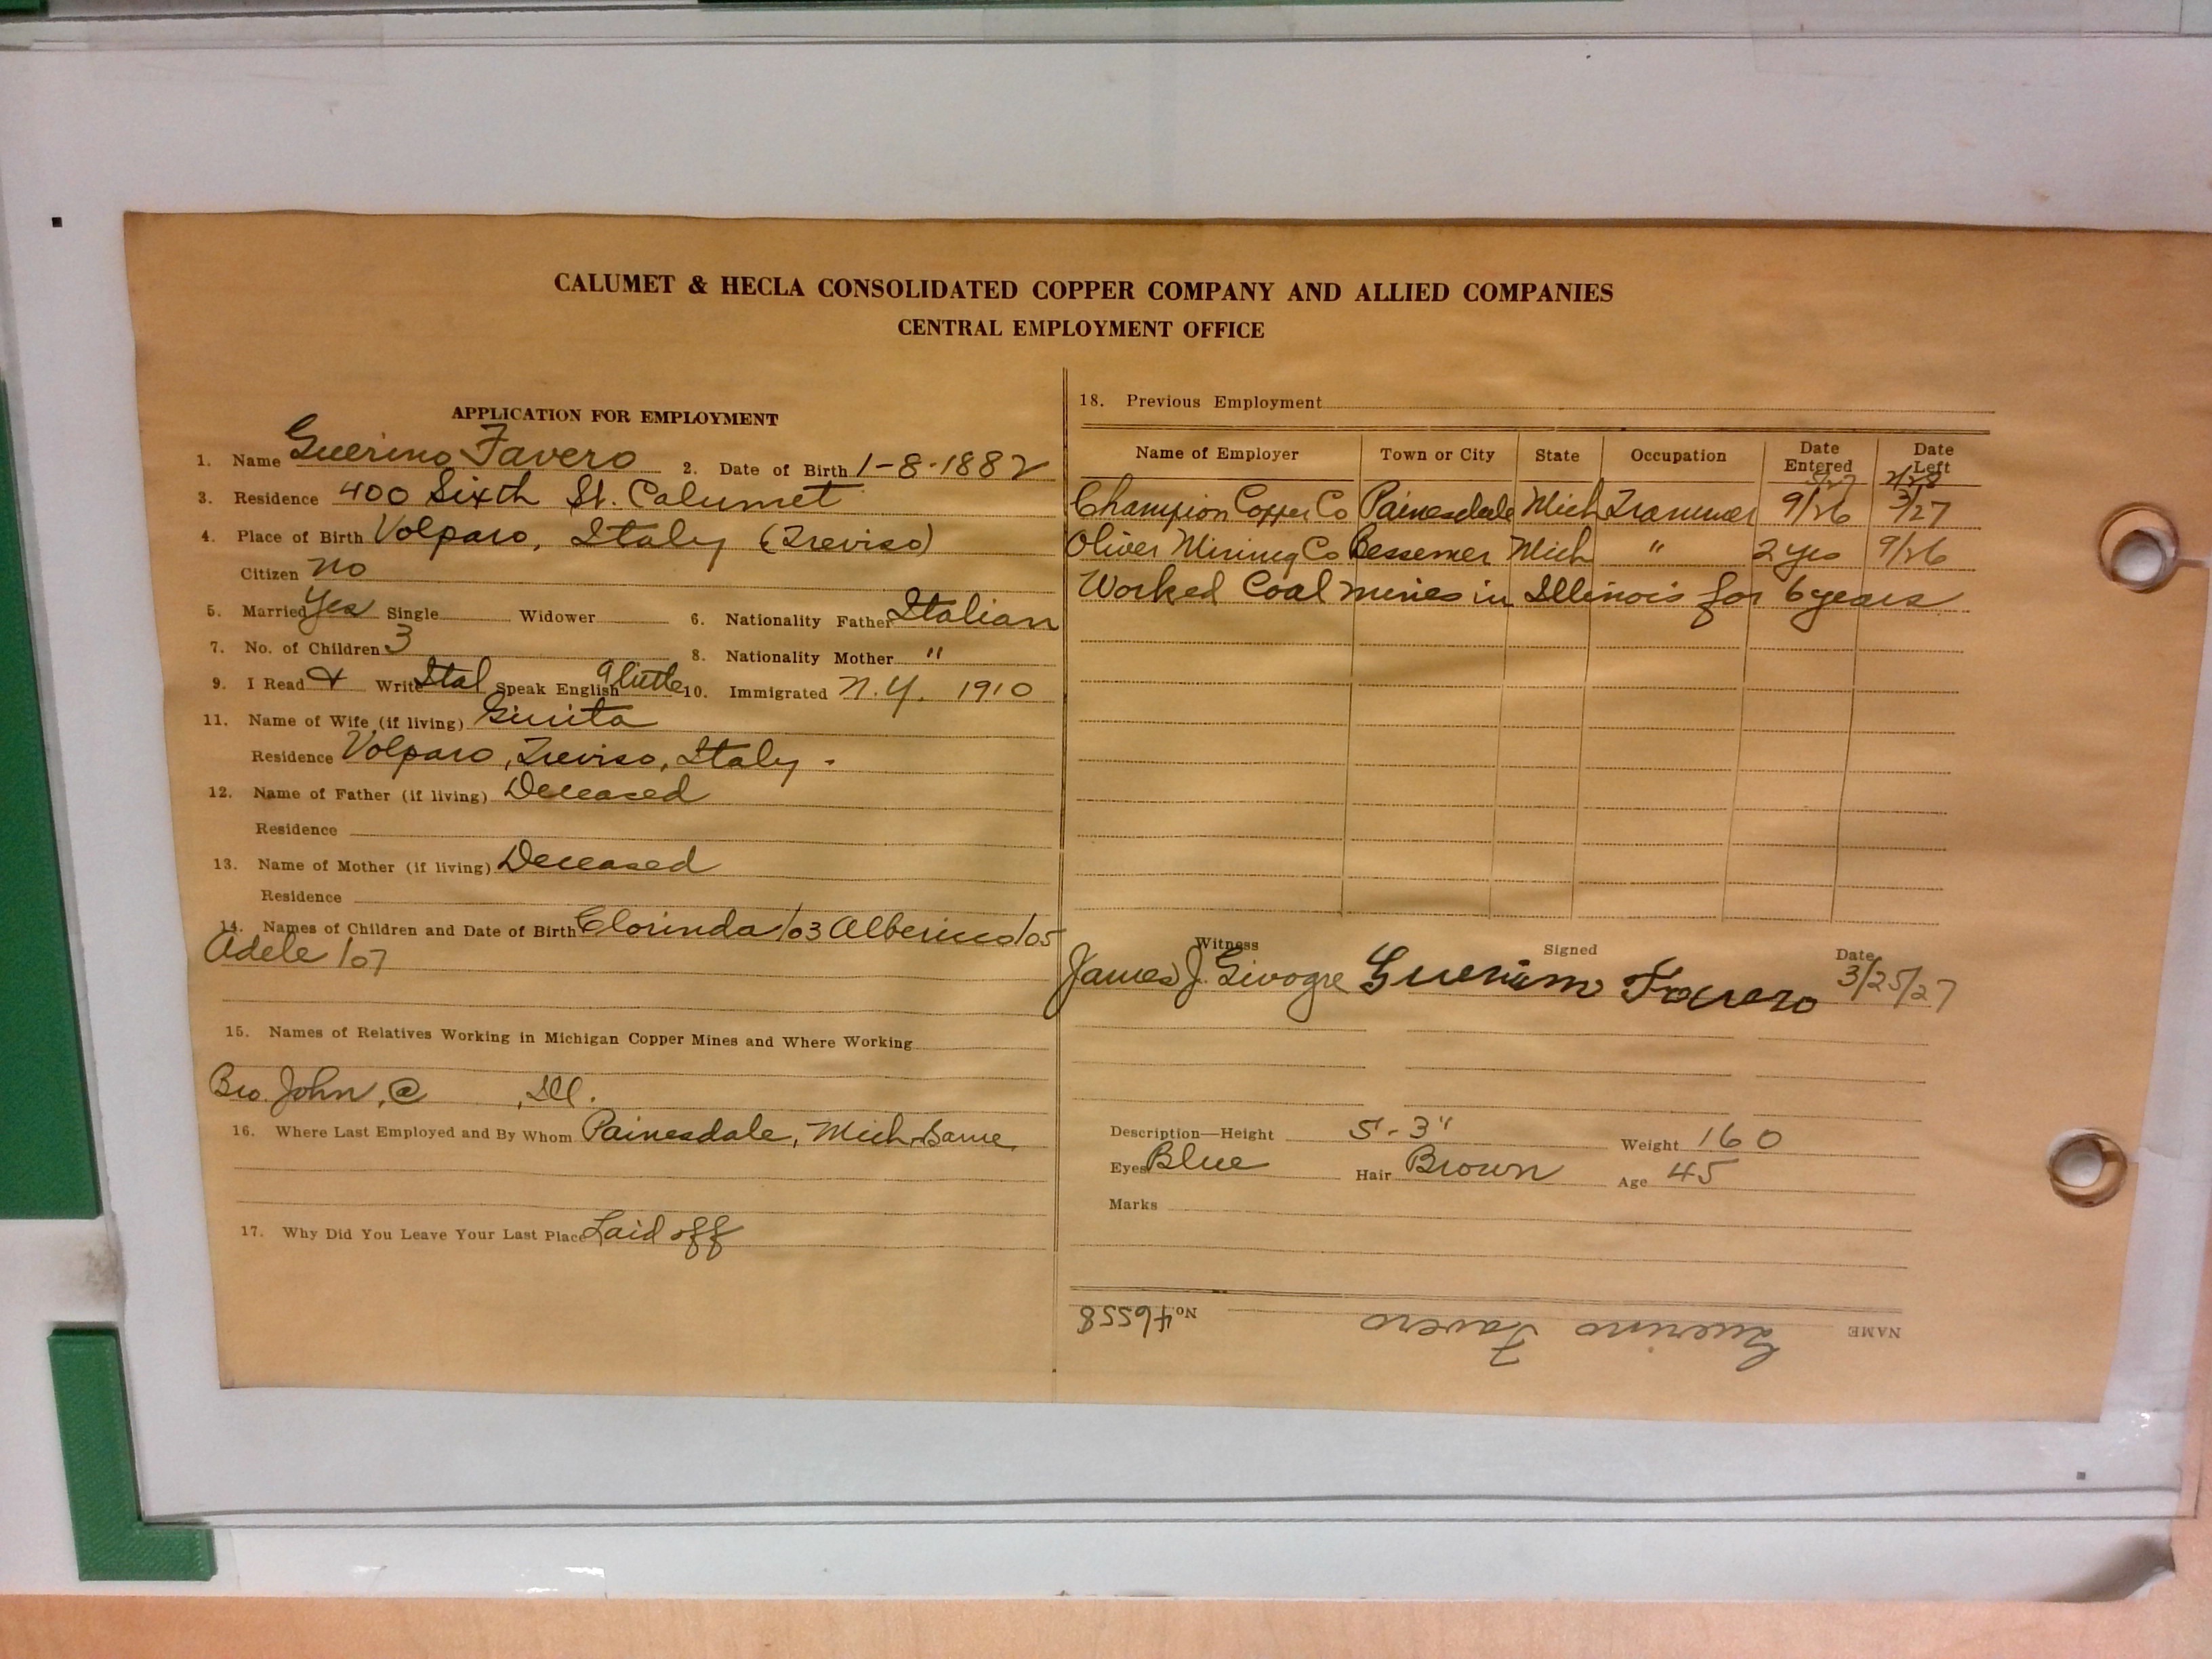 CALUMET & HECLA CONSOLIDATED COPPER COMPANY AND ALLIED COMPANIES
CENTRAL EMPLOYMENT OFFICE
APPLICATION FOR EMPLOYMENT
1. Name Guerino Favero 2. Date of Birth 1-8-1882
3. Residence 400 Sixth St. Calumet
4. Place of Birth Volparo, Italy (Treviso)
Citizen no
5. Married Yes Single Widower 6. Nationality Father Italian
7. No. of Children 3 8. Nationality Mother "
9. I Read & Write Ital Speak English a little 10. Immigrated N.Y. 1910
11. Name of Wife (if living)
Residence Volparo, Treviso, Italy.
12. Name of Father (if living) Deceased
Residence
13. Name of Mother (if living) Deceased
Residence
14. Names of Children and Date of Birth Clorinda/03 /05
Adele/07
15. Names of Relatives Working in Michigan Copper Mines and Where Working
Bro. John, @ , Ill.
16. Where Last Employed and By Whom Painesdale, Mich, Same
17. Why Did You Leave Your Last Place Laid off
18. Previous Employment
Name of Employer Town or City State Occupation Date Entered Date Left
5/27 2/28
Champion Copper Co Painesdale Mich Trammer 9/26 3/27
Oliver Mining Co Bessemer Mich " 2 yrs 9/26
Worked Coal mines in Illinois for 6 years
Witness Signed Date
James J. Guerino Favero 3/25/27
Description—Height 5-3" Weight 160
Eyes Blue Hair Brown Age 45
Marks
NAME Guerino Favero No. 46558